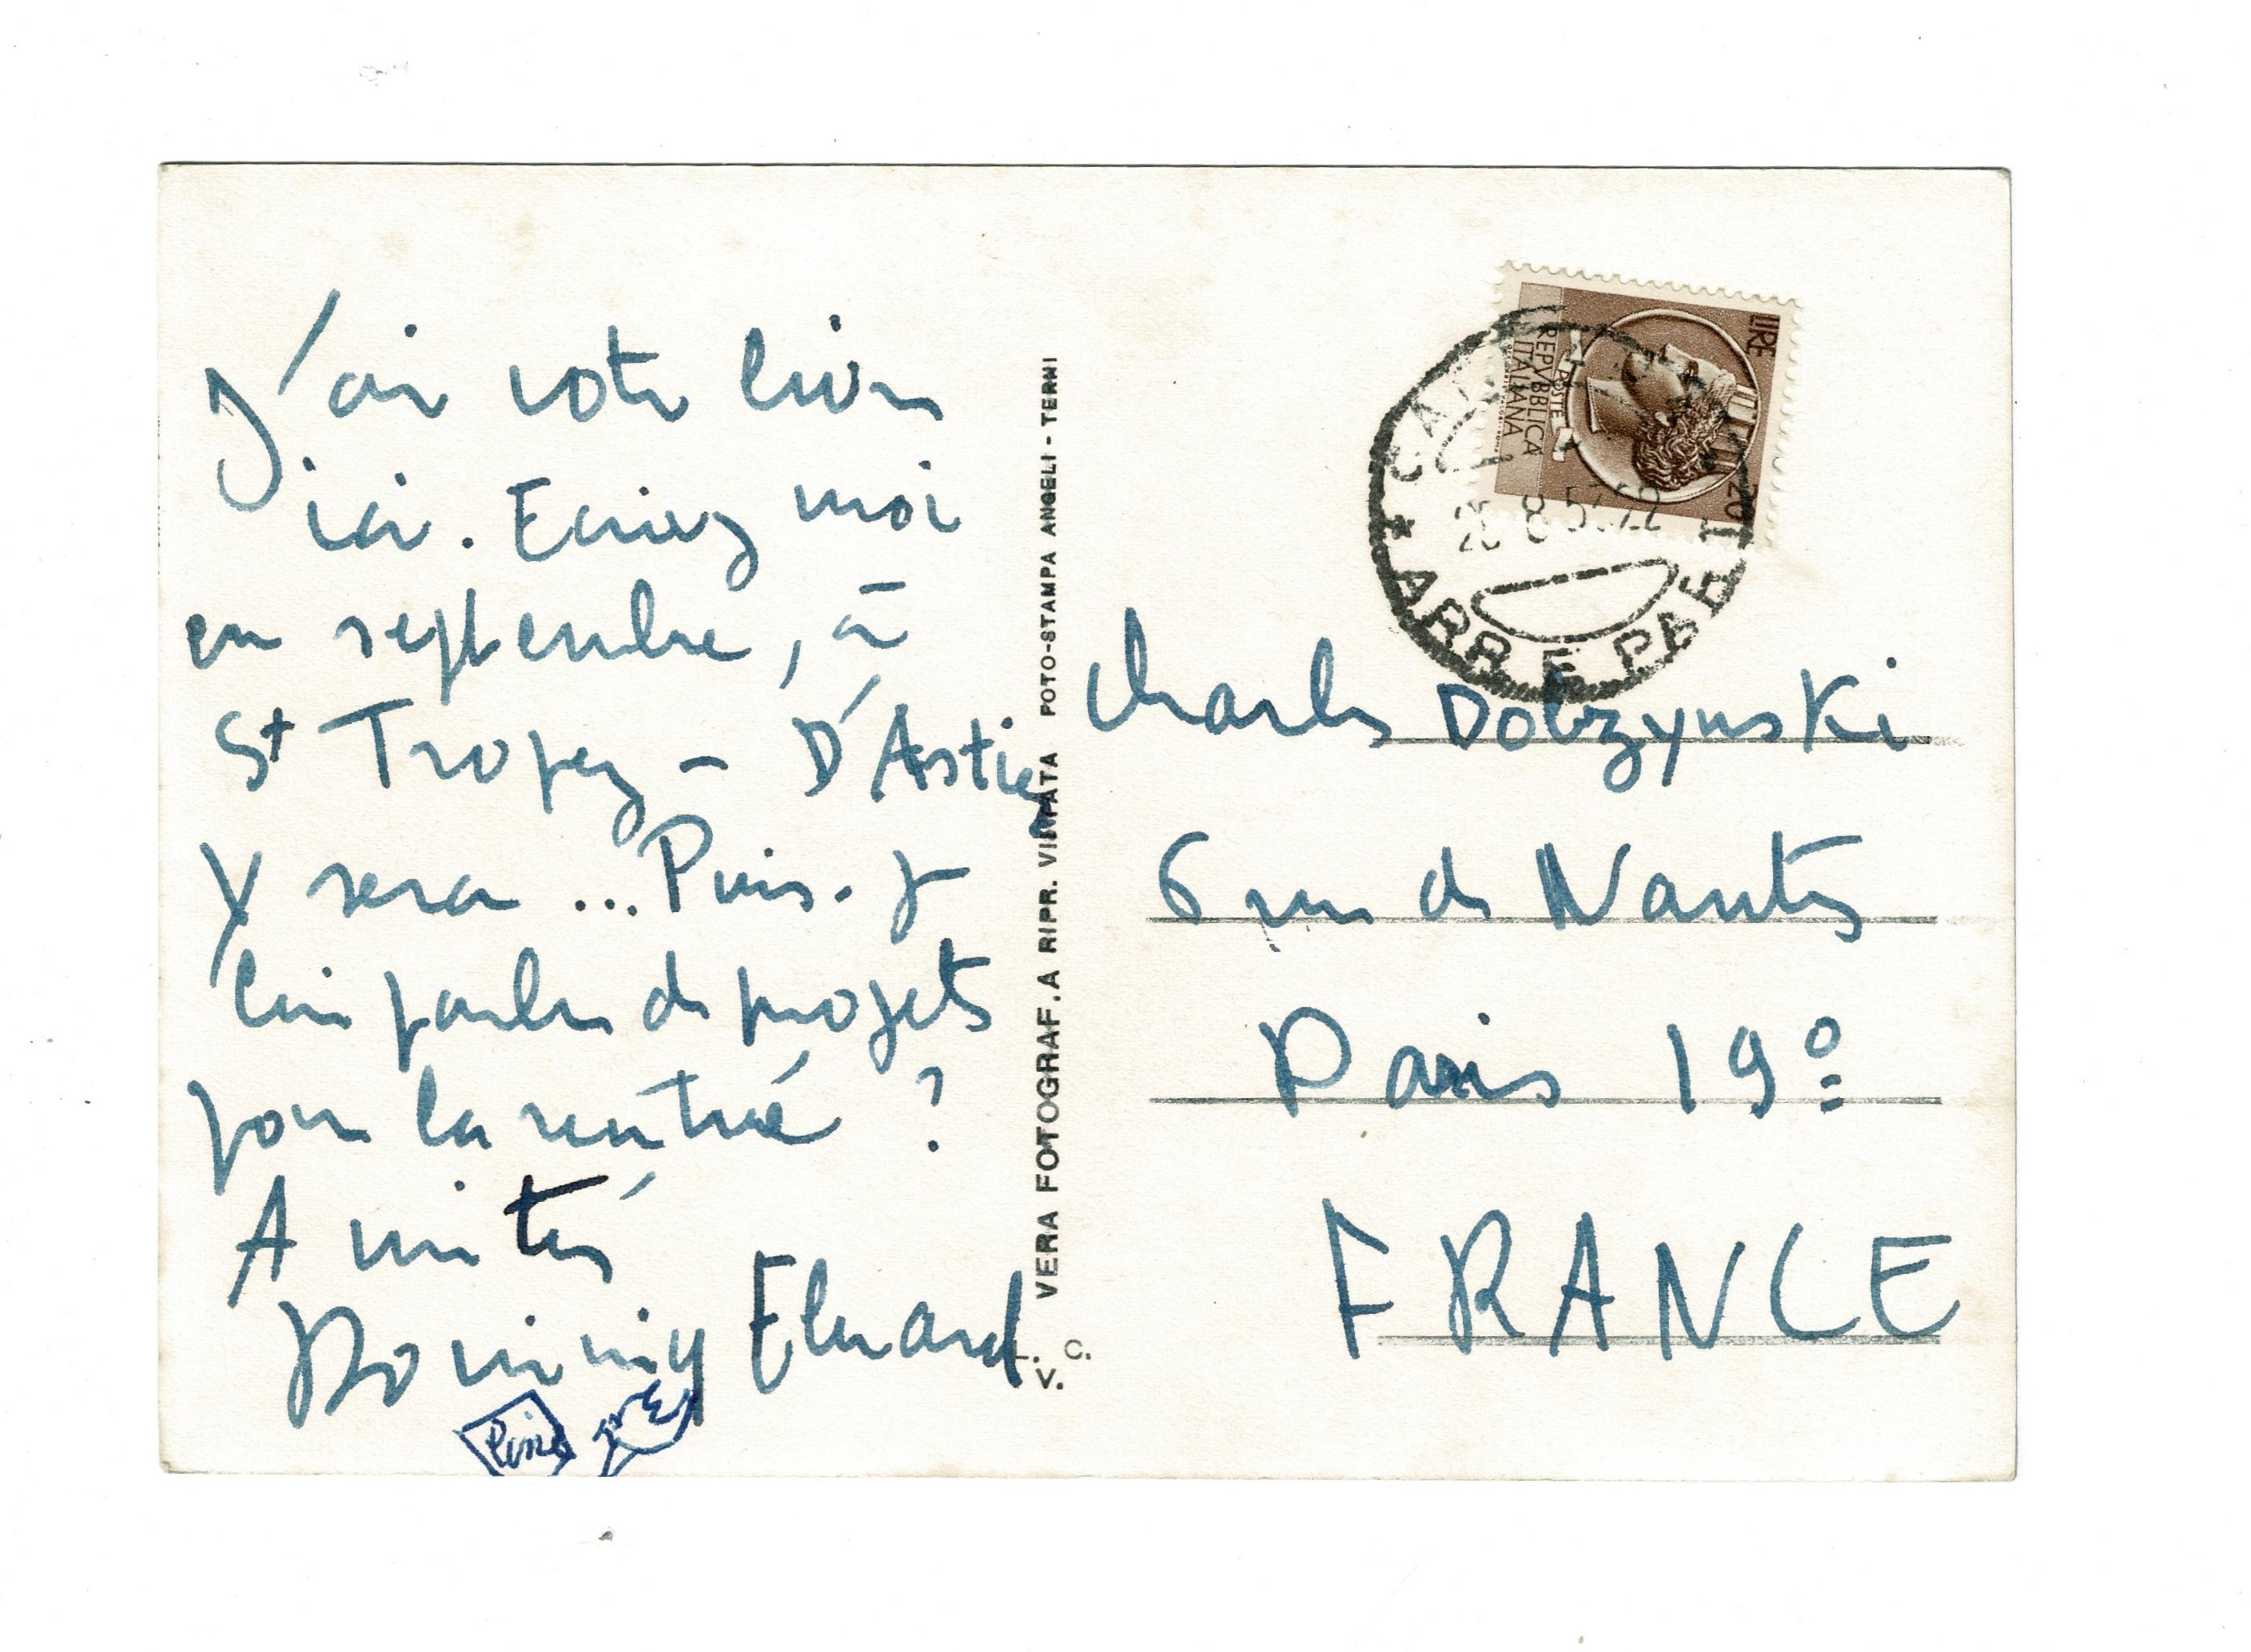 J'ai votre livre
ici. Ecrivez moi
en septembre, à
St Tropez - D'Astier
y sera ... Puis-je
lui parler de projets
pour la rentrée ?
Amitiés
Dominiq Eluard
VERA FOTOGRAF. A RIPR. VIETATA FOTO-STAMPA ANGELI - TERNI
V. C.
LIRE 20
POSTE
REPVBBLICA
ITALIANA
8 5
ARR E PART
Charles Dobzynski
6 rue de Nantes
Paris 19º
FRANCE